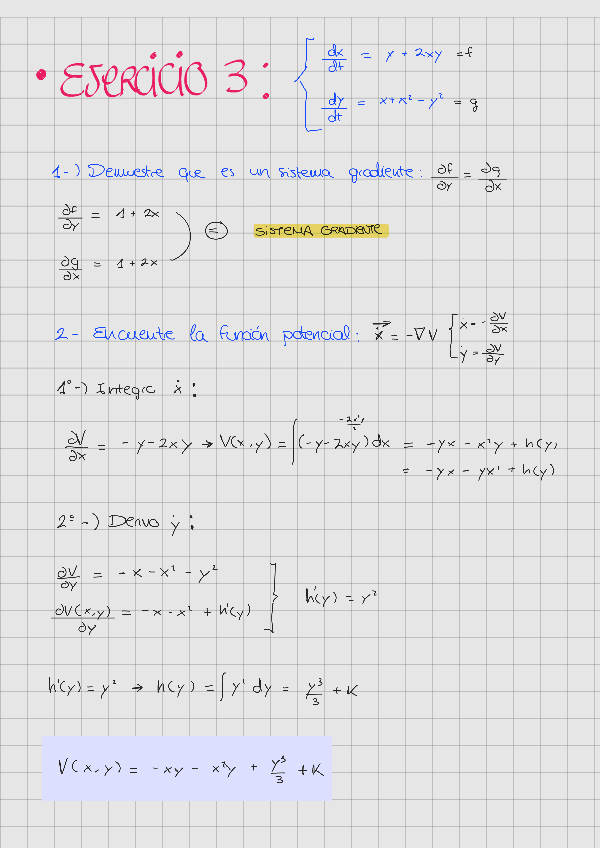 • EJERCICIO 3 :
dx/dt = y + 2xy = f
dy/dt = x + x² - y² = g
1-) Demuestre que es un sistema gradiente: ∂f/∂y = ∂g/∂x
∂f/∂y = 1 + 2x
⇒ SISTEMA GRADIENTE
∂g/∂x = 1 + 2x
2- Encuentre la función potencial: ẋ = -∇V { ẋ = -∂V/∂x
ẏ = -∂V/∂y
1º-) Integra ẋ :
-2x²y/2
∂V/∂x = -y - 2xy → V(x,y) = ∫(-y-2xy)dx = -yx - x²y + h(y)
= -yx - yx² + h(y)
2º-) Derivo ẏ :
∂V/∂y = -x - x² - y²
∂V(x,y)/∂y = -x - x² + h'(y)
h'(y) = y²
h'(y) = y² → h(y) = ∫ y² dy = y³/3 + K
V(x,y) = -xy - x²y + y³/3 + K